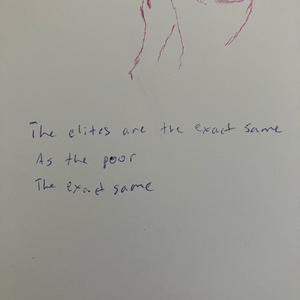 The elites are the exact same
As the poor
The exact same